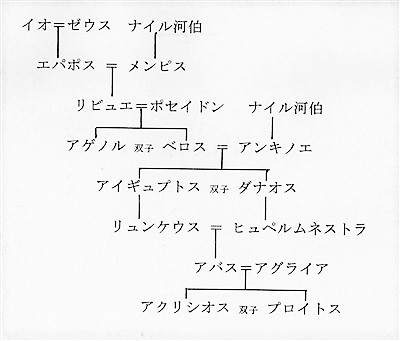 イオ＝ゼウス　ナイル河伯
エパポス ＝ メンピス
リビュエ＝ポセイドン　ナイル河伯
アゲノル 双子 ベロス ＝ アンキノエ
アイギュプトス 双子 ダナオス
リュンケウス ＝ ヒュペルムネストラ
アバス＝アグライア
アクリシオス 双子 プロイトス